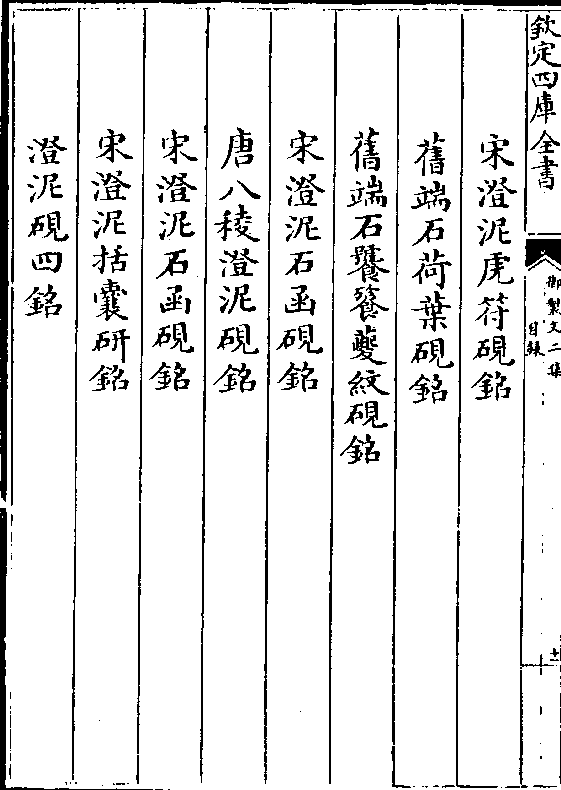 欽定四庫全書
御製文二集
目録
十二
宋澄泥虎符硯銘
舊端石荷葉硯銘
舊端石饕餮夔紋硯銘
宋澄泥石函硯銘
唐八稜澄泥硯銘
宋澄泥石函硯銘
宋澄泥括囊研銘
澄泥硯四銘